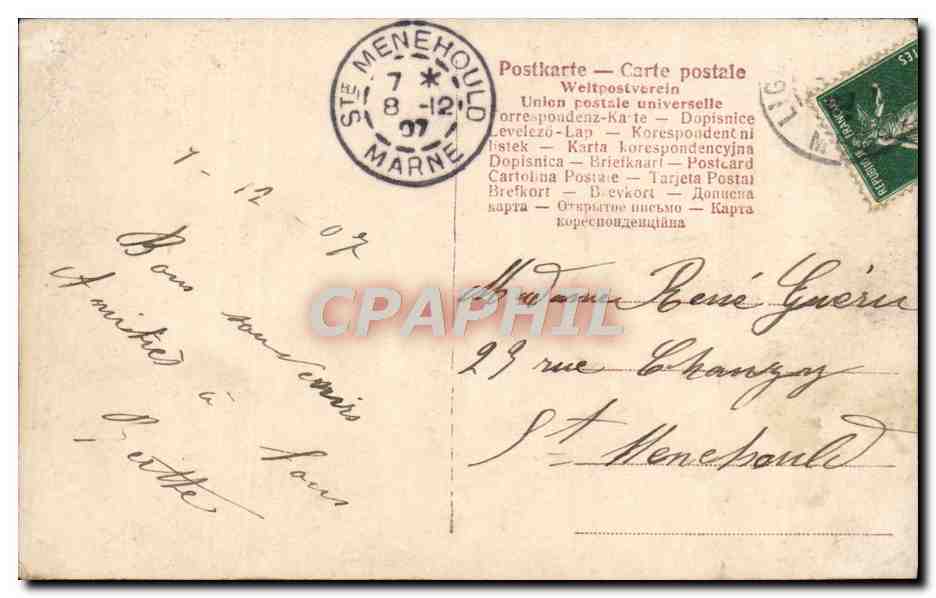 STE MENEHOULD
7 *
8 -12
07
MARNE
Postkarte — Carte postale
Weltpostverein
Union postale universelle
Correspondenz-Karte — Dopisnice
Levelező-Lap — Korespondentni
listek — Karta korespondencyjna
Dopisnica — Briefkaart — Postcard
Cartolina Postale — Tarjeta Postal
Brefkort — Brevkort — Дописна
карта — Открытое письмо — Карта
кореспонденційна
LIG
REPUBLIQUE FRANC
7-12-07
Bons souvenirs
Amitiés à tous
Madame René Guérin
23 rue Chanzy
St Menehould
CPAPHIL